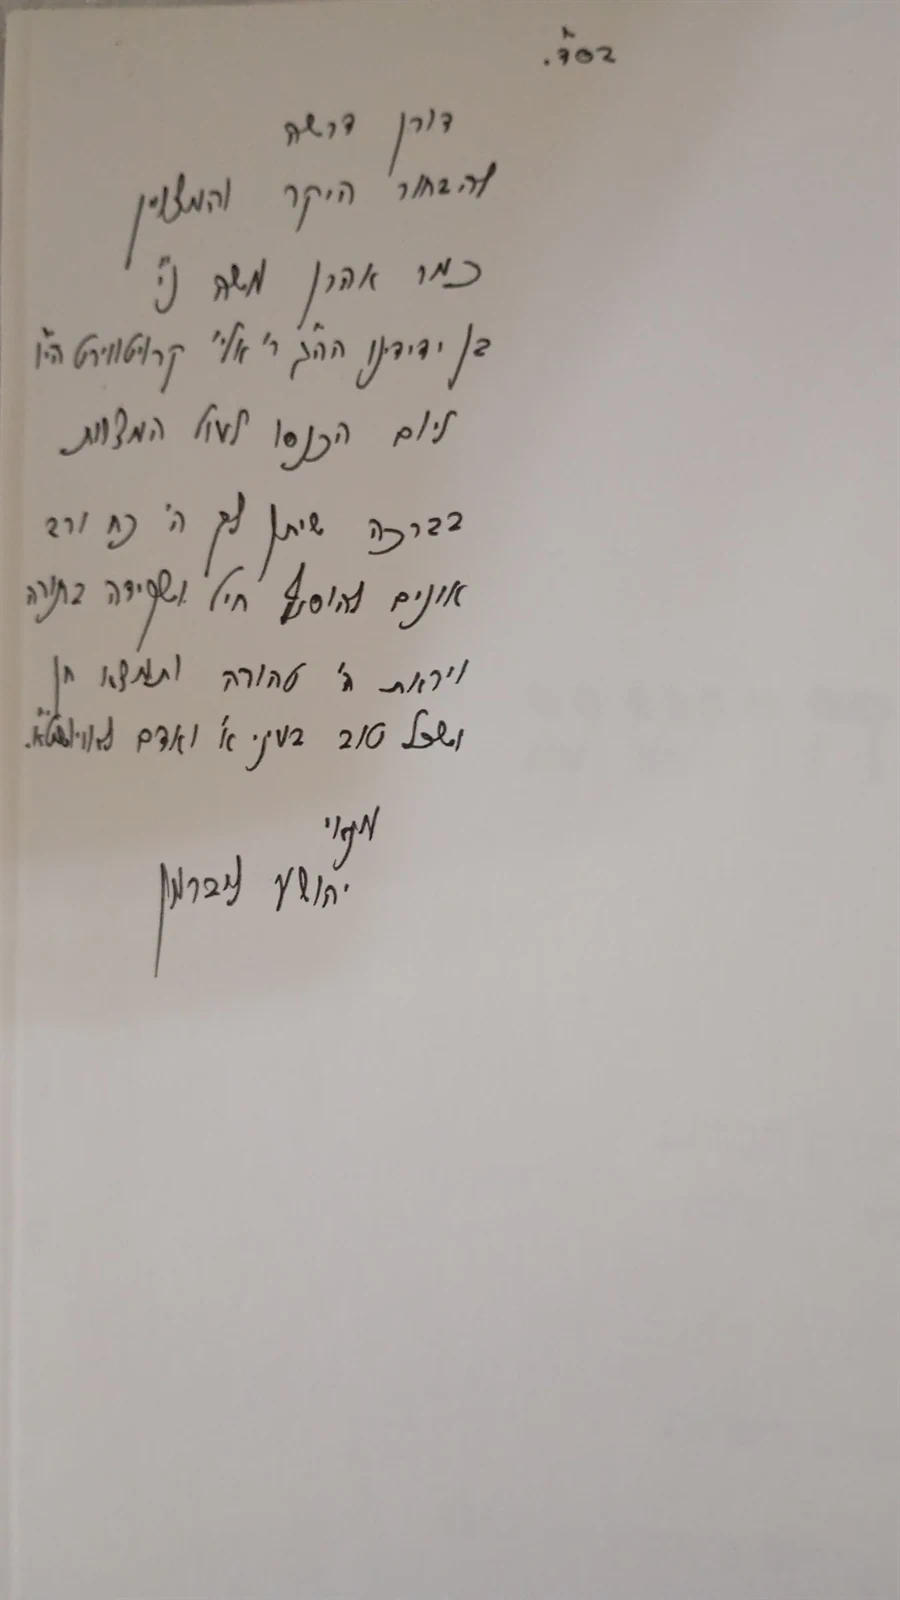 בסד".
דורון דרשה
להבחור היקר והמצויין
כמר אהרן משה ני"
בן ידידינו הה"ג ר' אלי' קרויטווירט הי"ו
ליום הכנסו לעול המצוות
בברכה שיתן לך ה' כח ורב
אונים להוסיף חיל ושקידה בתורה
ויראת ה' טהורה ותמצא חן
ושכל טוב בעיני א' ואדם
יהושע ליברמן